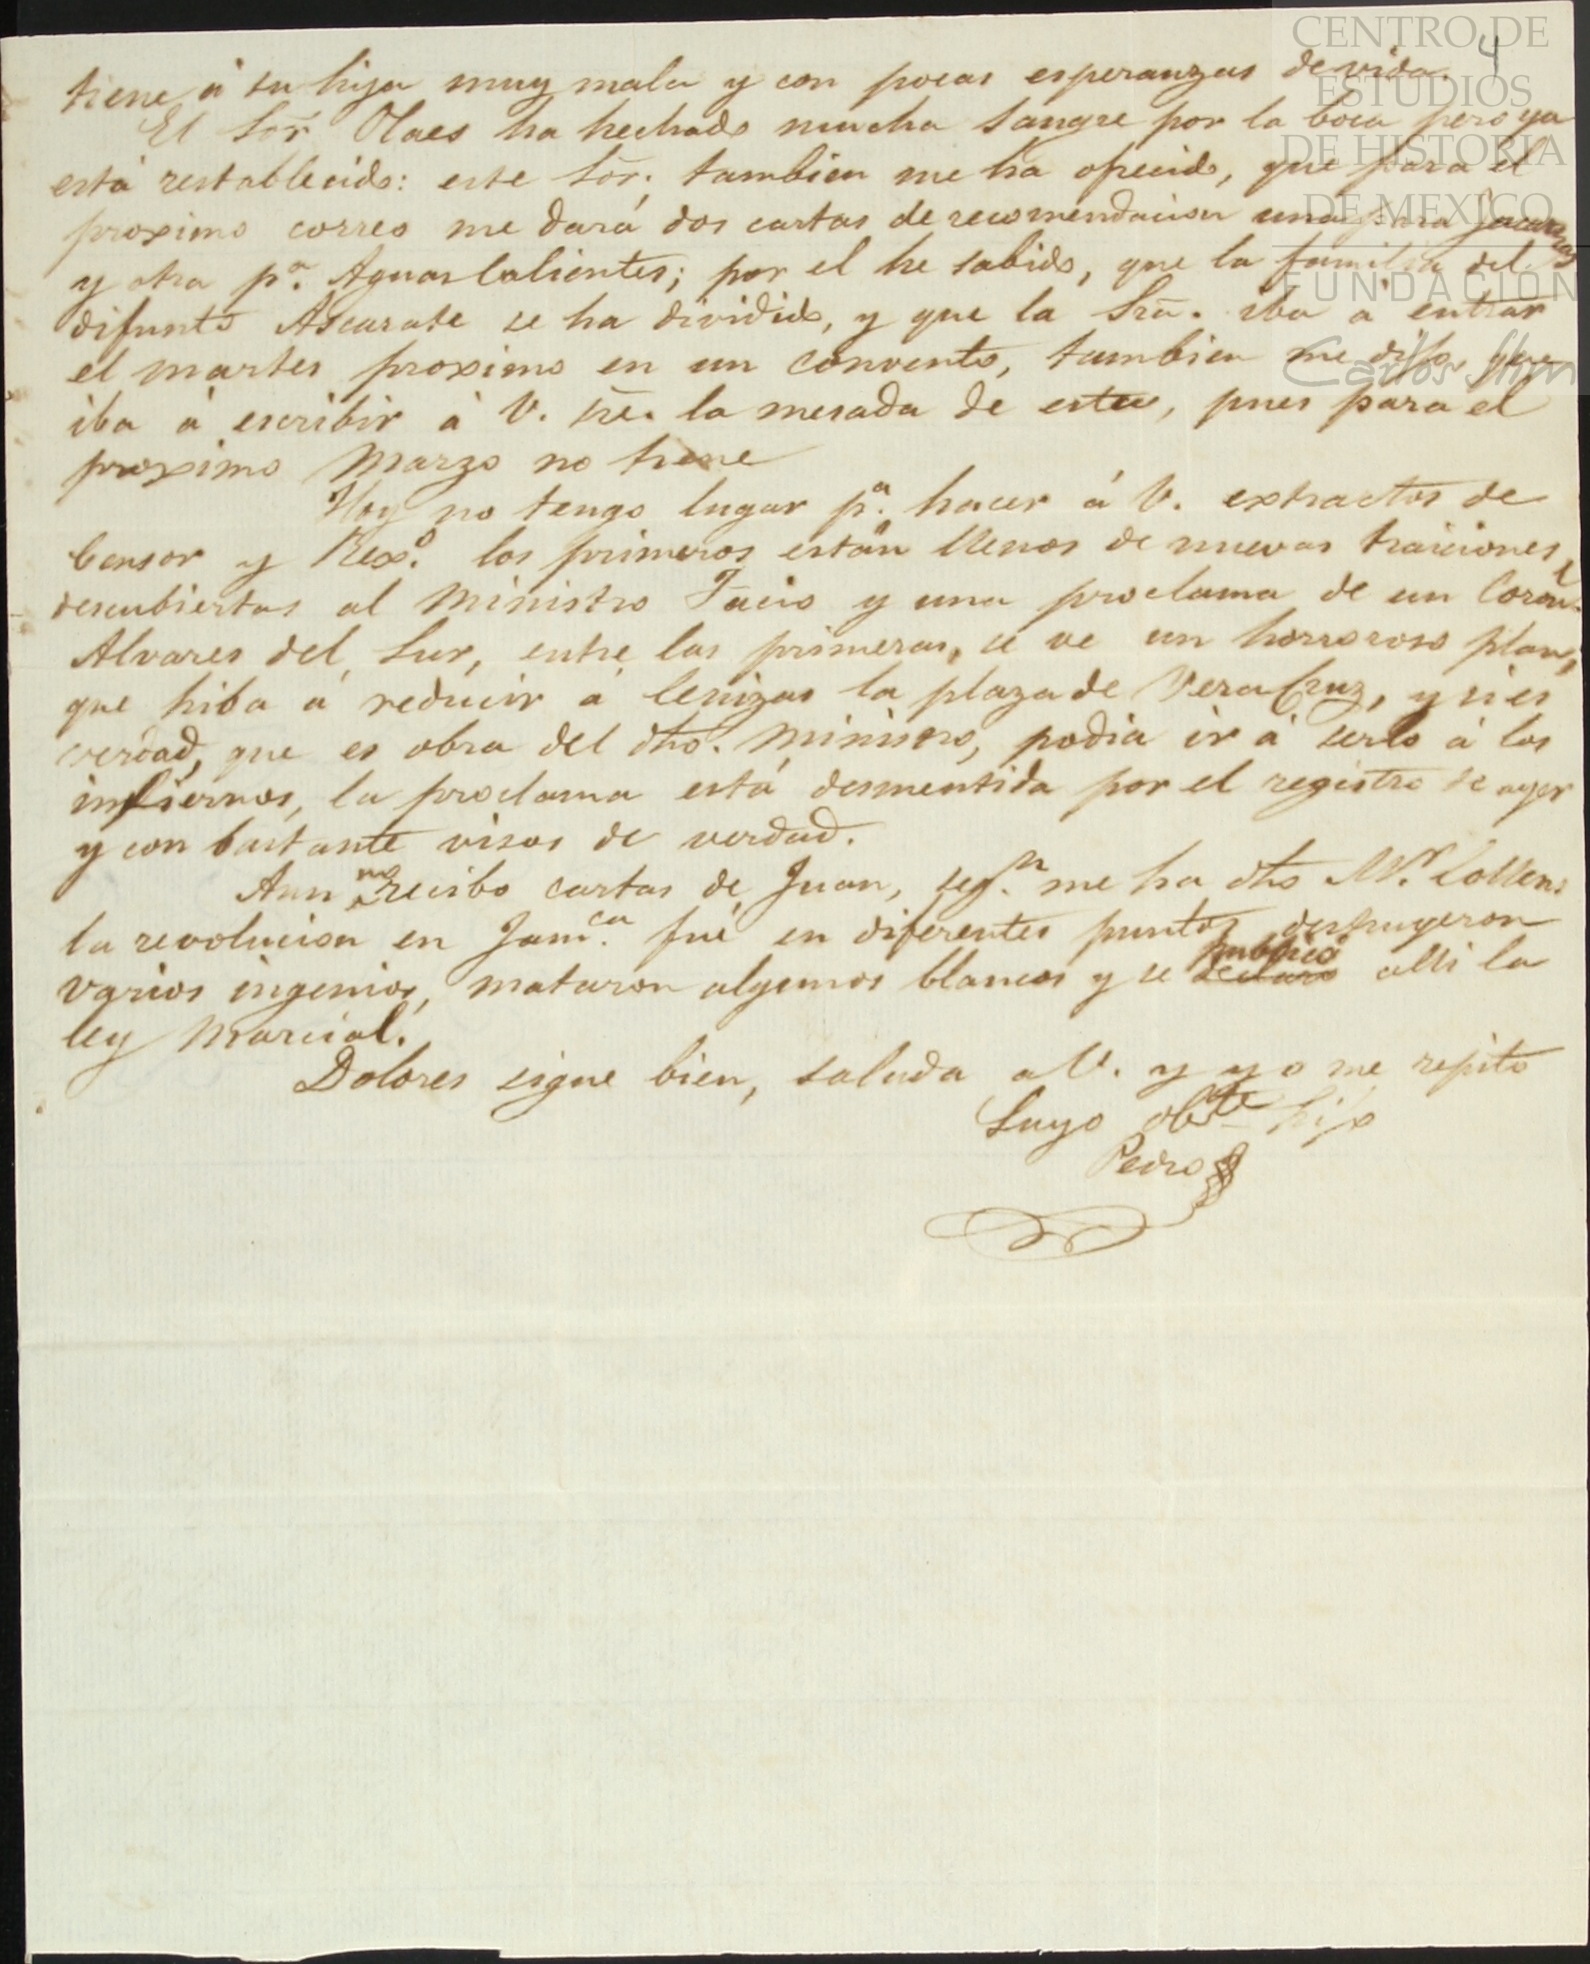 4
CENTRO DE
ESTUDIOS
DE HISTORIA
DE MEXICO
FUNDACIÓN
Carlos Slim
tiene á su hija muy mala y con pocas esperanzas de vida.
El Sor. Olaes ha hechado mucha sangre por la boca pero ya
está restablecido: este Sor. tambien me ha ofrecido, que para el
proximo correo me dará dos cartas de recomendacion una para Zacatecas
y otra pa. Aguas Calientes; por el he sabido, que la familia del
difunto Ascarate se ha dividido, y que la Sra. iba á entrar
el martes proximo en un convento, tambien me dijo, que
iba á escribir á V. sre. la mesada de esta, pues para el
proximo Marzo no tiene
Hoy no tengo lugar pa. hacer á V. extractos de
Censor y Rexo. los primeros están llenos de nuevas traiciones
descubiertas al Ministro Facio y una proclama de un Coronl.
Alvares del Sur, entre las primeras, se ve un horroroso plan,
que hiba á reducir á cenizas la plaza de Vera Cruz, y si es
verdad, que es obra del dho. Ministro, podia ir á serlo á los
infiernos, la proclama está desmentida por el registro de ayer
y con bastante visos de verdad.
Aun no recibo cartas de Juan, segn. me ha dho Mr. Collens
la revolucion en Jamca. fué en diferentes puntos, destruyeron
varios ingenios, mataron algunos blancos y se publicó allí la
ley Marcial.
Dolores sigue bien, saluda a V. y yo me repito
Suyo obte hijo
Pedro